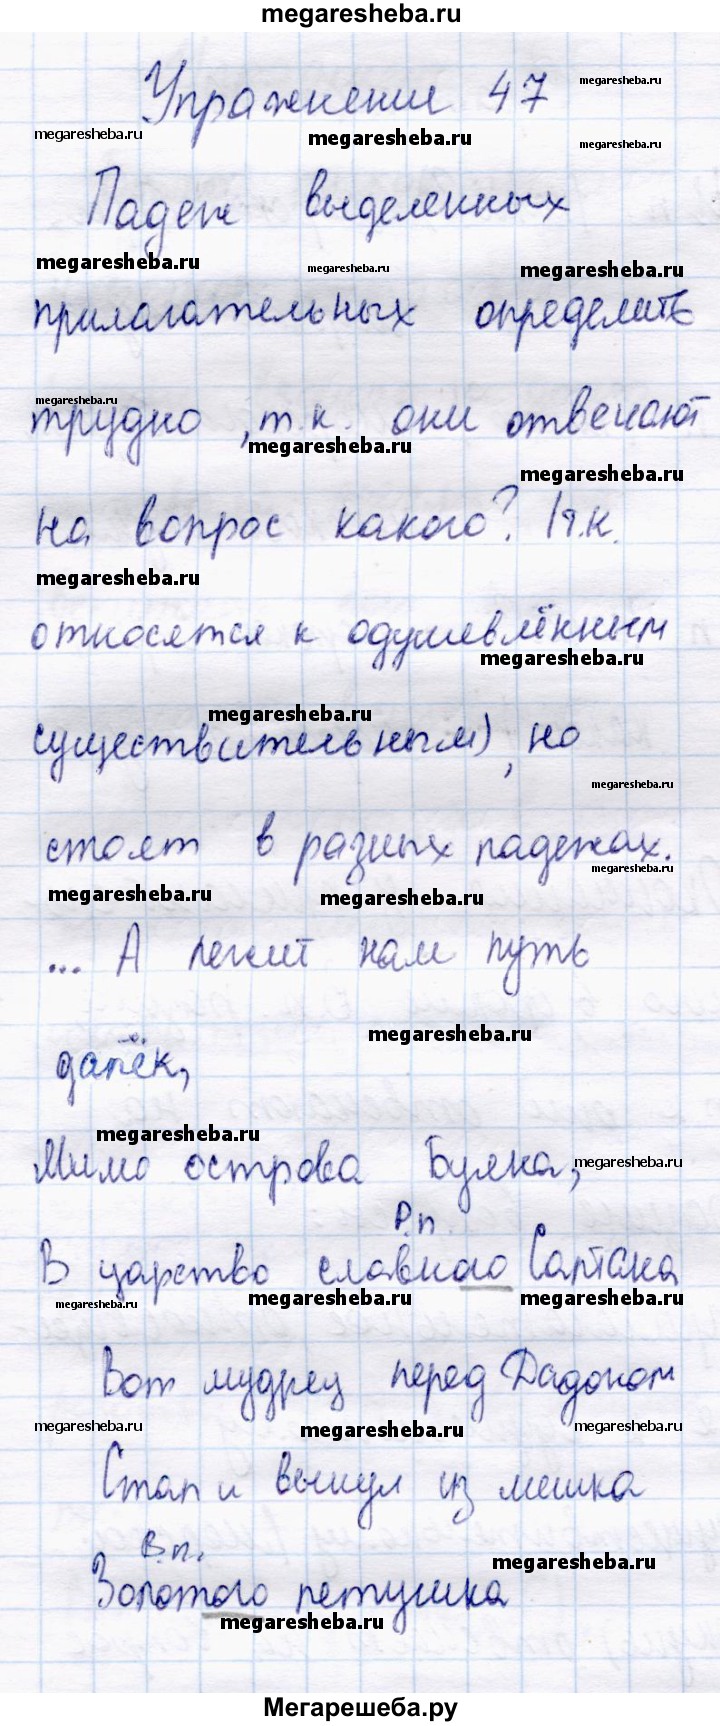 megaresheba.ru
Упражнение 47
Падеж выделенных
прилагательных определить
трудно, т.к. они отвечают
на вопрос какого? (т.к.
относятся к одушевлённым
существительным), но
стоят в разных падежах.
... А лежит нам путь
далёк,
Мимо острова Буяна,
Р.п.
В царство славного Салтана
Вот мудрец перед Дадоном
Стал и вынул из мешка
В.п.
Золотого петушка
Мегарешеба.ру